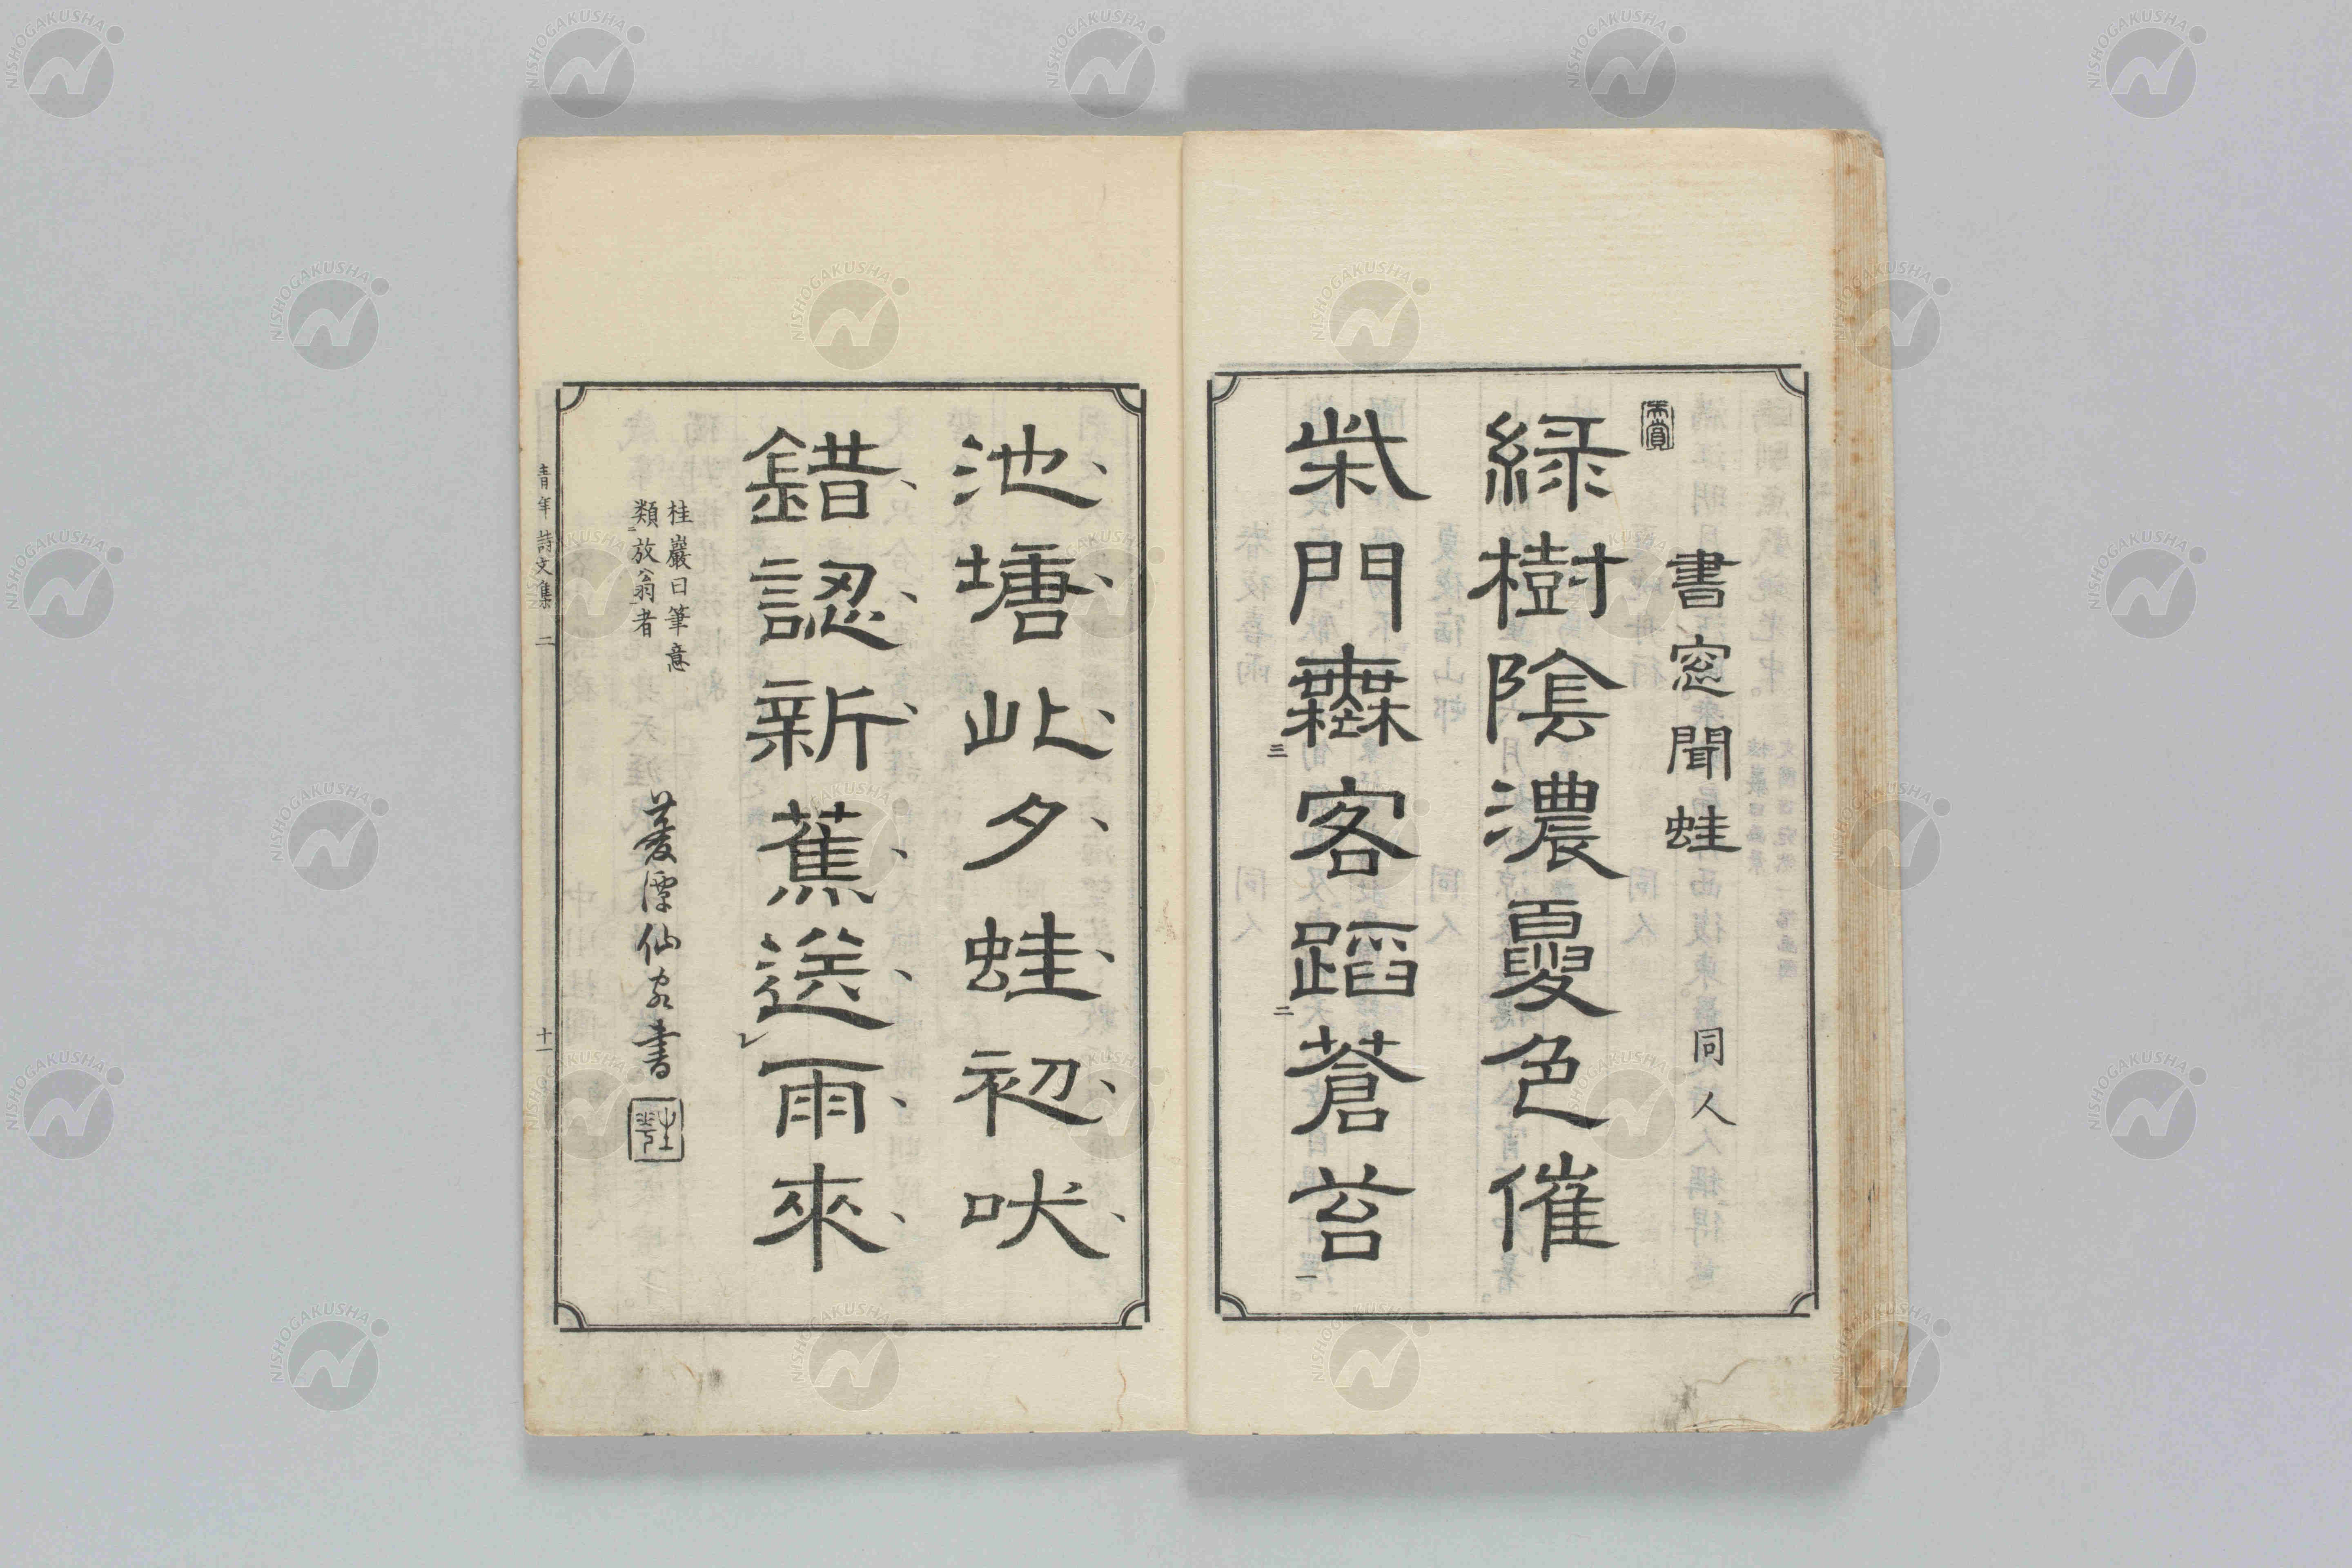 書窓聞蛙 同人
緑樹陰濃夏色催
柴門無客蹈蒼苔
池塘此夕蛙初吠
錯認新蕉送雨來
桂巖曰筆意
類放翁者
菱潭仙史書
青年詩文集 二 十一
NISHOGAKUSHA